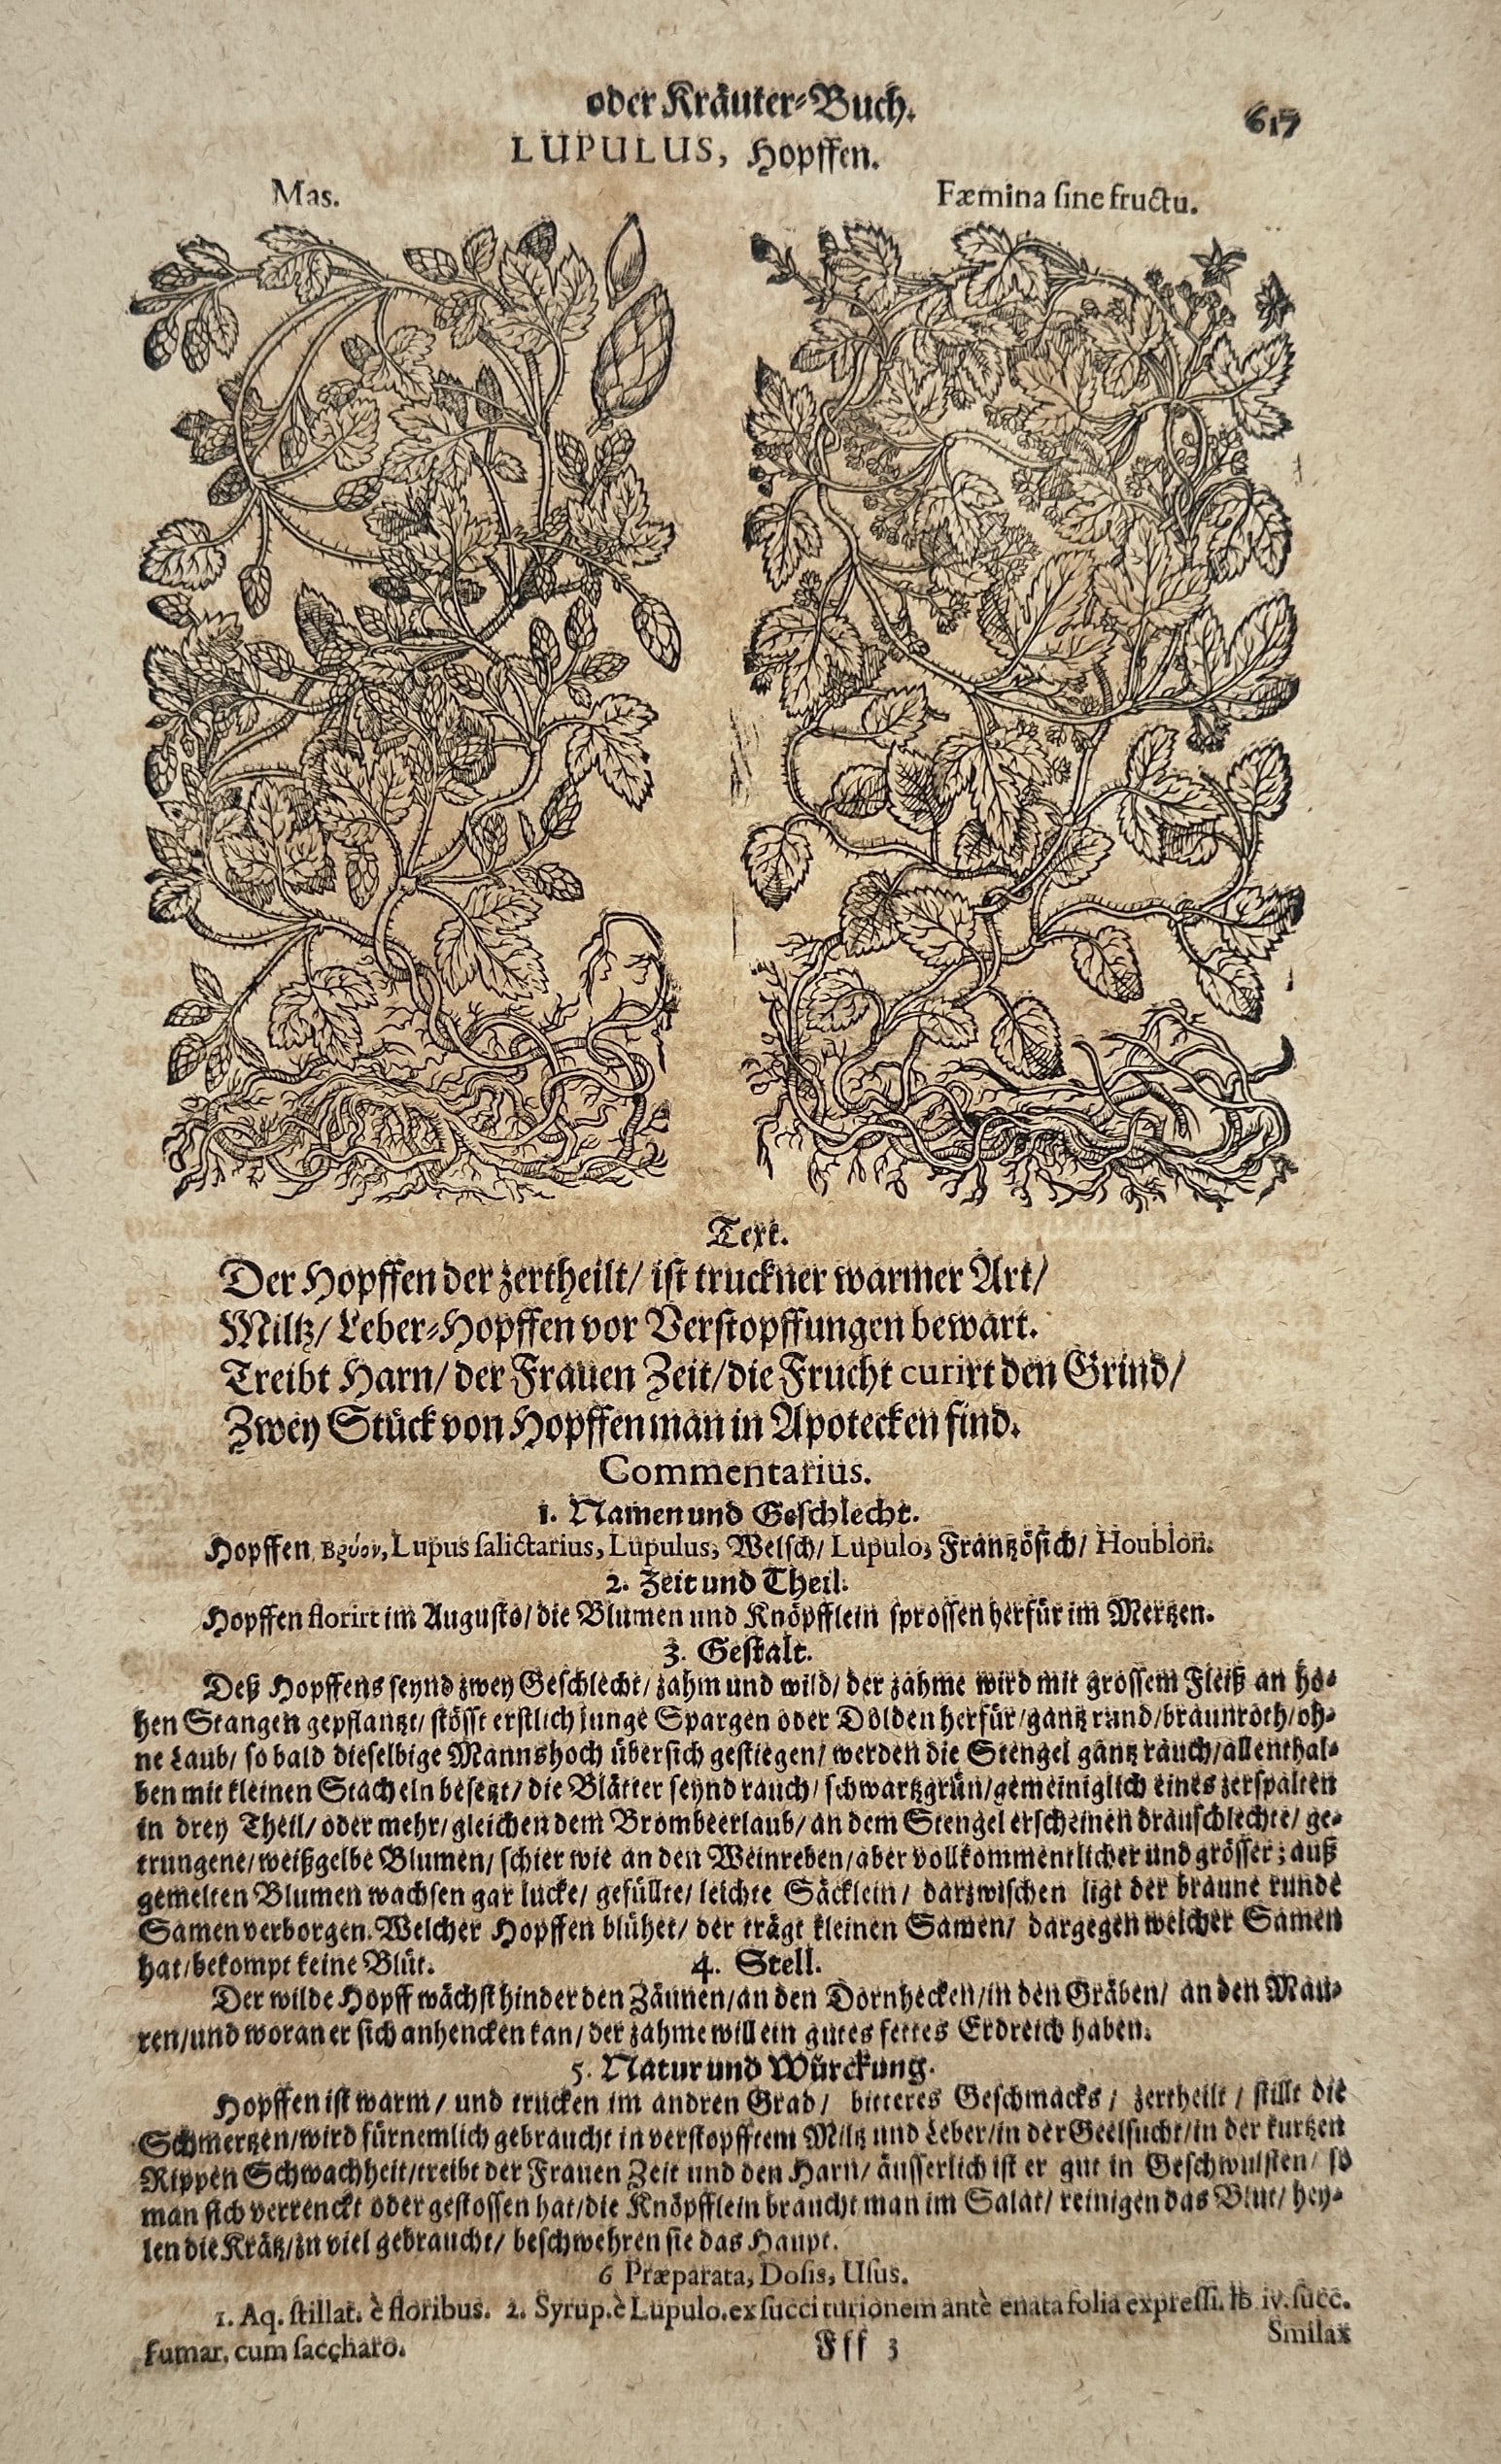 oder Kräuter-Buch. 617
LUPULUS, Hopffen.
Mas. Fæmina ſine fructu.
Text.
Der Hopffen der zertheilt/ iſt truckner warmer Art/
Miltz/ Leber-Hopffen vor Verſtopffungen bewart.
Treibt Harn/ der Frauen Zeit/die Frucht curirt den Grind/
Zwey Stück von Hopffen man in Apotecken find.
Commentarius.
1. Namen und Geſchlecht.
Hopffen, Βρύον, Lupus ſalictarius, Lupulus; Welſch/ Lupulo; Frantzöſich/ Houblon.
2. Zeit und Theil.
Hopffen florirt im Auguſto/die Blumen und Knöpfflein ſproſſen herfür im Mertzen.
3. Geſtalt.
Deß Hopffens ſeynd zwey Geſchlecht/ zahm und wild/ der zahme wird mit groſſem Fleiß an ho-
hen Stangen gepflantzt/ ſtöſſt erſtlich junge Spargen oder Dolden herfür/gantz rund/braunroth/oh-
ne Laub/ ſo bald dieſelbige Mannshoch überſich geſtiegen/ werden die Stengel gantz rauch/allenthal-
ben mit kleinen Stacheln beſetzt/ die Blätter ſeynd rauch/ ſchwartzgrün/gemeiniglich eines zerſpalten
in drey Theil/ oder mehr/gleichen dem Brombeerlaub/ an dem Stengel erſcheinen drauſchlechte/ ge-
trungene/weißgelbe Blumen/ ſchier wie an den Weinreben/aber vollkommentlicher und gröſſer; auß
gemelten Blumen wachſen gar lucke/ gefüllte/ leichte Säcklein/ darzwiſchen ligt der braune runde
Samen verborgen. Welcher Hopffen blühet/ der trägt kleinen Samen/ dargegen welcher Samen
hat/bekompt keine Blüt. 4. Stell.
Der wilde Hopff wächſt hinder den Zäunen/an den Dornhecken/in den Gräben/ an den Mau-
ren/und woran er ſich anhencken kan/ der zahme will ein gutes fettes Erdreich haben.
5. Natur und Würckung.
Hopffen iſt warm/ und trucken im andren Grad/ bitteres Geſchmacks/ zertheilt/ ſtillt die
Schmertzen/wird fürnemlich gebraucht in verſtopfftem Miltz und Leber/in der Geelſucht/in der kurtzen
Rippen Schwachheit/treibt der Frauen Zeit und den Harn/ äuſſerlich iſt er gut in Geſchwulſten/ ſo
man ſich verrenckt oder geſtoſſen hat/die Knöpfflein braucht man im Salat/ reinigen das Blut/ hey-
len die Krätz/zu viel gebraucht/ beſchwehren ſie das Haupt.
6 Præparata, Doſis, Uſus.
1. Aq. ſtillat. è floribus. 2. Syrup. è Lupulo. ex ſucci turionem antè enata folia expreſſi. ℔ iv. ſucc.
fumar. cum ſaccharo. Fff 3 Smilax